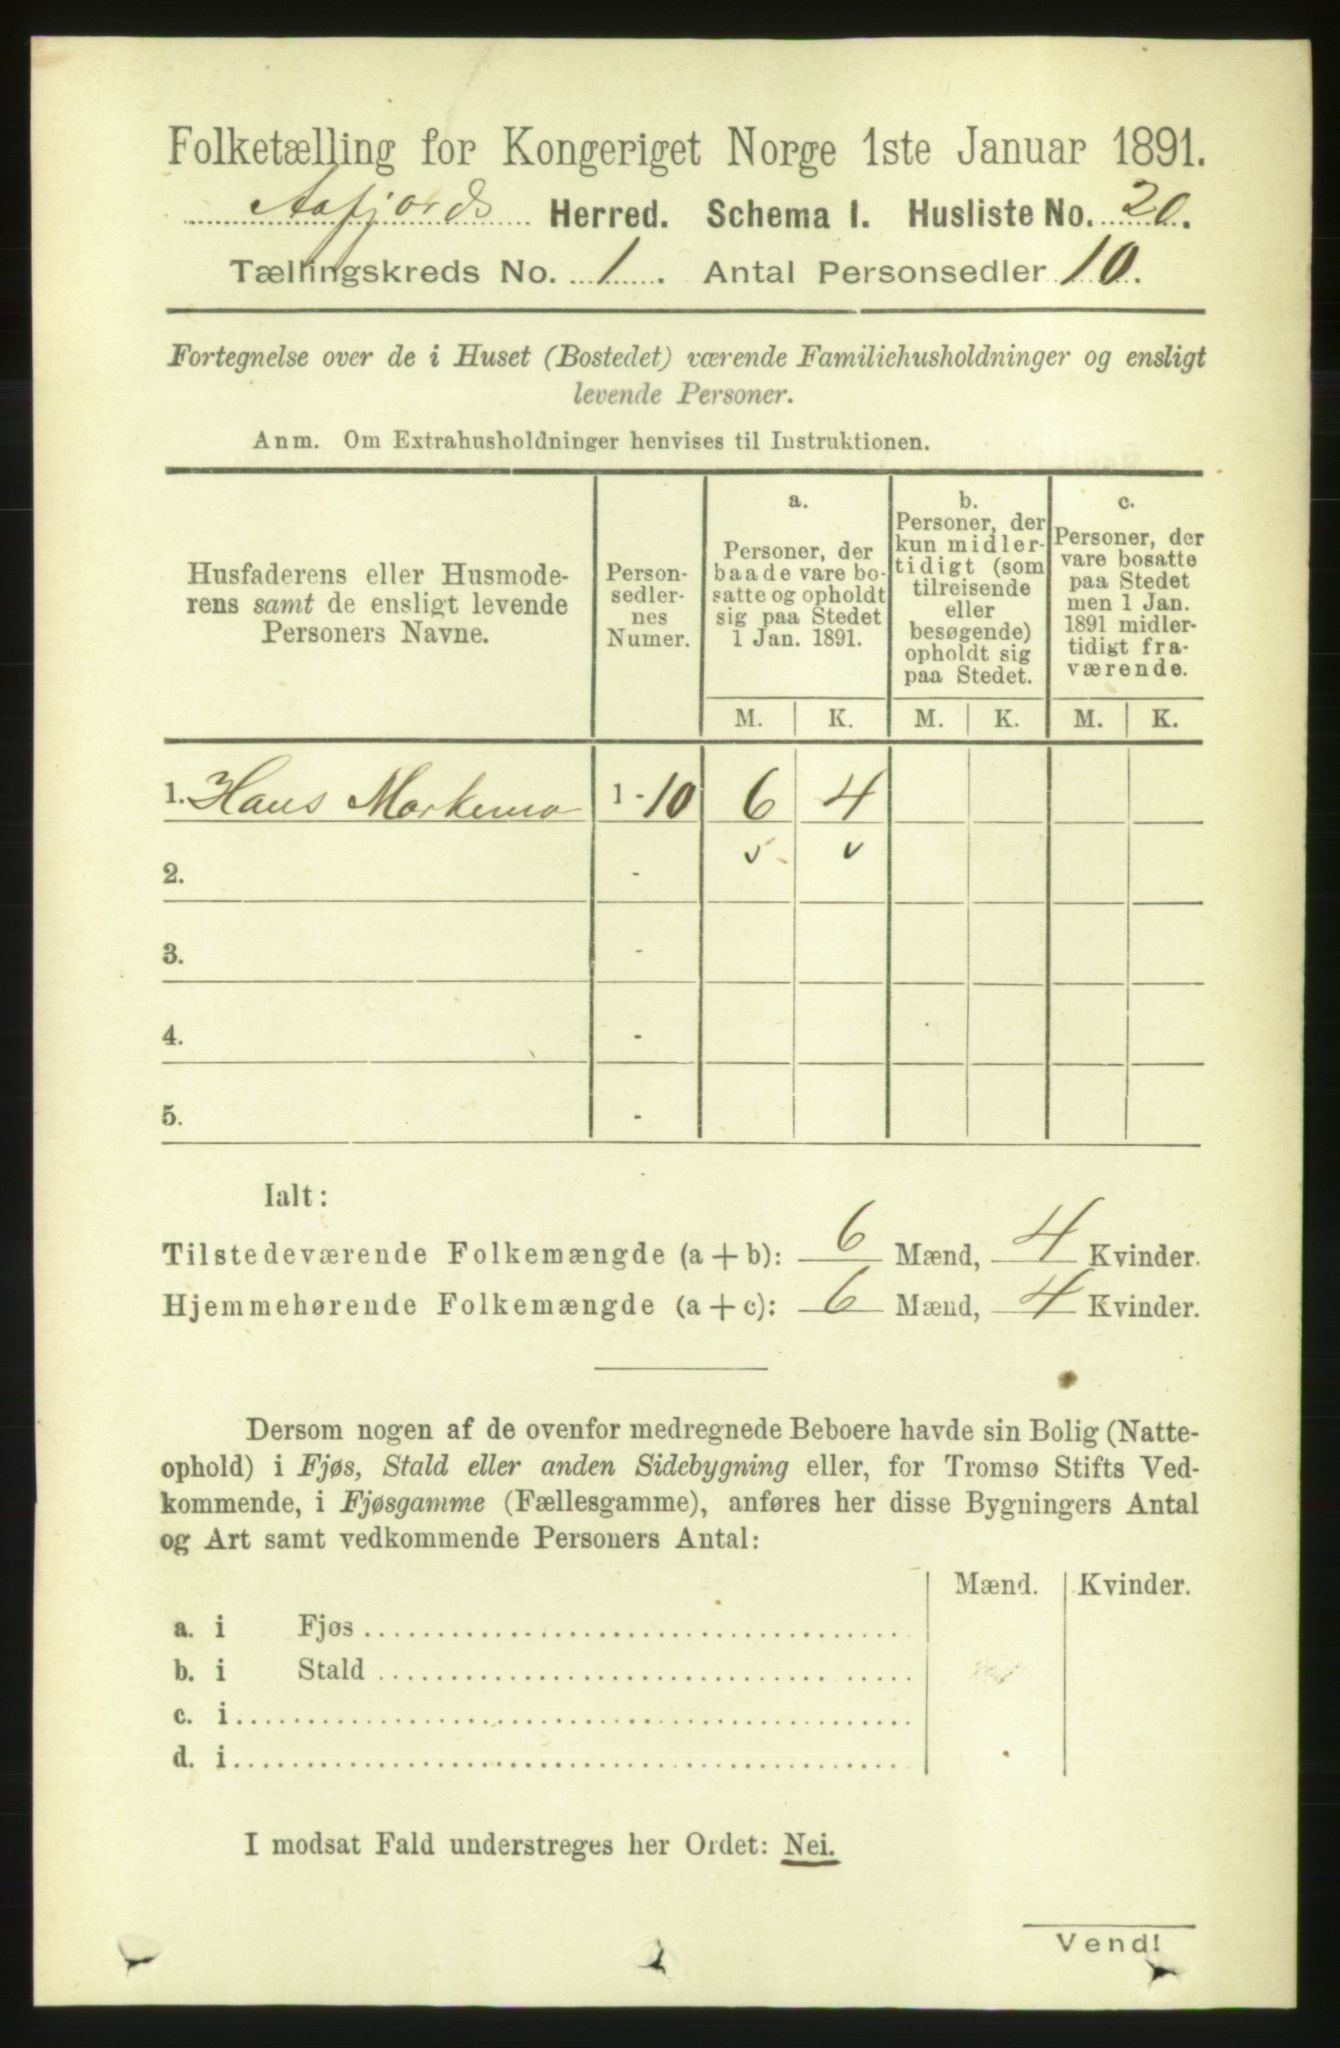 Folketælling for Kongeriget Norge 1ste Januar 1891.
Aafjords Herred. Schema I. Husliste No. 20.
Tællingskreds No. 1. Antal Personsedler 10.
Fortegnelse over de i Huset (Bostedet) værende Familiehusholdninger og ensligt
levende Personer.
Anm. Om Extrahusholdninger henvises til Instruktionen.
Husfaderens eller Husmode-
rens samt de ensligt levende
Personers Navne.
Person-
sedler-
nes
Numer.
a.
Personer, der
baade vare bo-
satte og opholdt
sig paa Stedet
1 Jan. 1891.
b.
Personer, der
kun midler-
tidigt (som
tilreisende
eller
besøgende)
opholdt sig
paa Stedet.
c.
Personer, der
vare bosatte
paa Stedet
men 1 Jan.
1891 midler-
tidigt fra-
værende.
M. K. M. K. M. K.
1. Hans Markemo 1 - 10 6 4
2. - v v
3. -
4. -
5. -
Ialt:
Tilstedeværende Folkemængde (a + b): 6 Mænd, 4 Kvinder.
Hjemmehørende Folkemængde (a + c): 6 Mænd, 4 Kvinder.
Dersom nogen af de ovenfor medregnede Beboere havde sin Bolig (Natte-
ophold) i Fjøs, Stald eller anden Sidebygning eller, for Tromsø Stifts Ved-
kommende, i Fjøsgamme (Fællesgamme), anføres her disse Bygningers Antal
og Art samt vedkommende Personers Antal:
Mænd. Kvinder.
a. i Fjøs
b. i Stald
c. i
d. i
I modsat Fald understreges her Ordet: Nei.
Vend!